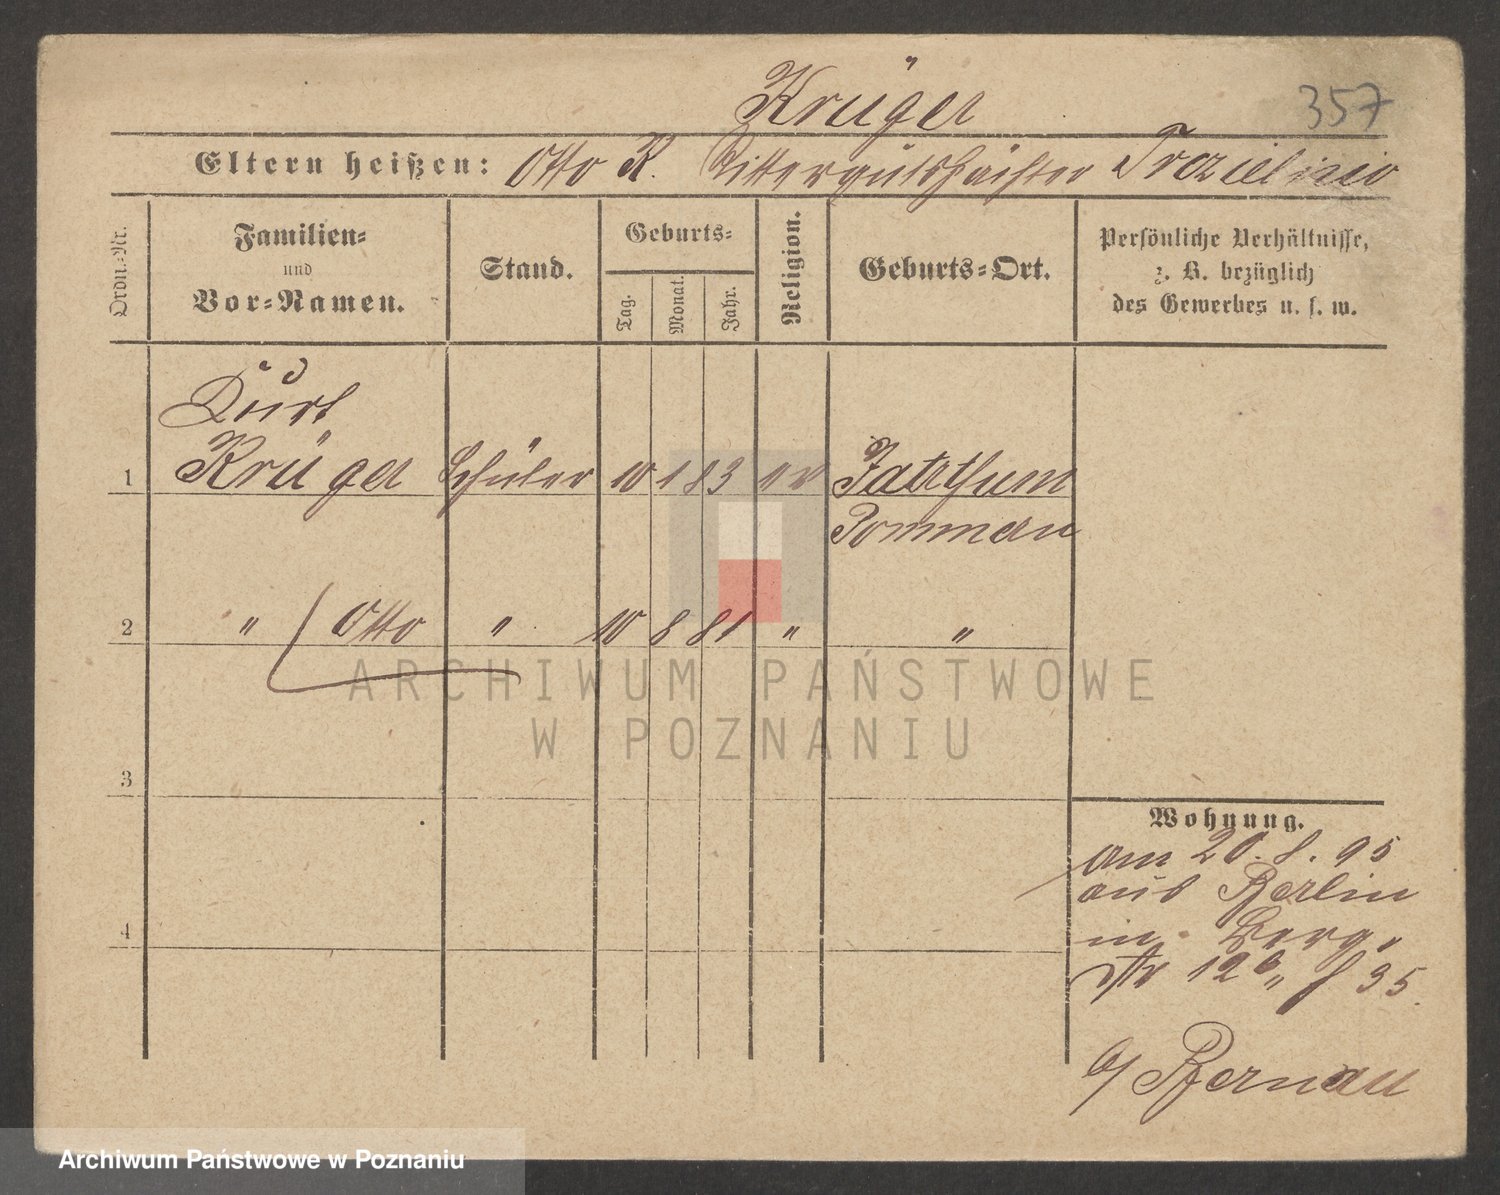 Krüger
357
Eltern heißen: Otto K. Rittergutspächter
Ordn.-Nr.
Familien-
und
Vor-Namen.
Stand.
Geburts-
Tag.
Monat.
Jahr.
Religion.
Geburts-Ort.
Persönliche Verhältnisse,
z. B. bezüglich
des Gewerbes u. s. w.
Kurt
1 Krüger Schüler 10 1 83 ev
Pommern
2 " Otto " 10 8 81 " "
3
4
Wohnung.
am 20.8.95
aus Berlin
in Berg.
Str 12
b/ Bernau
ARCHIWUM PAŃSTWOWE
W POZNANIU
Archiwum Państwowe w Poznaniu